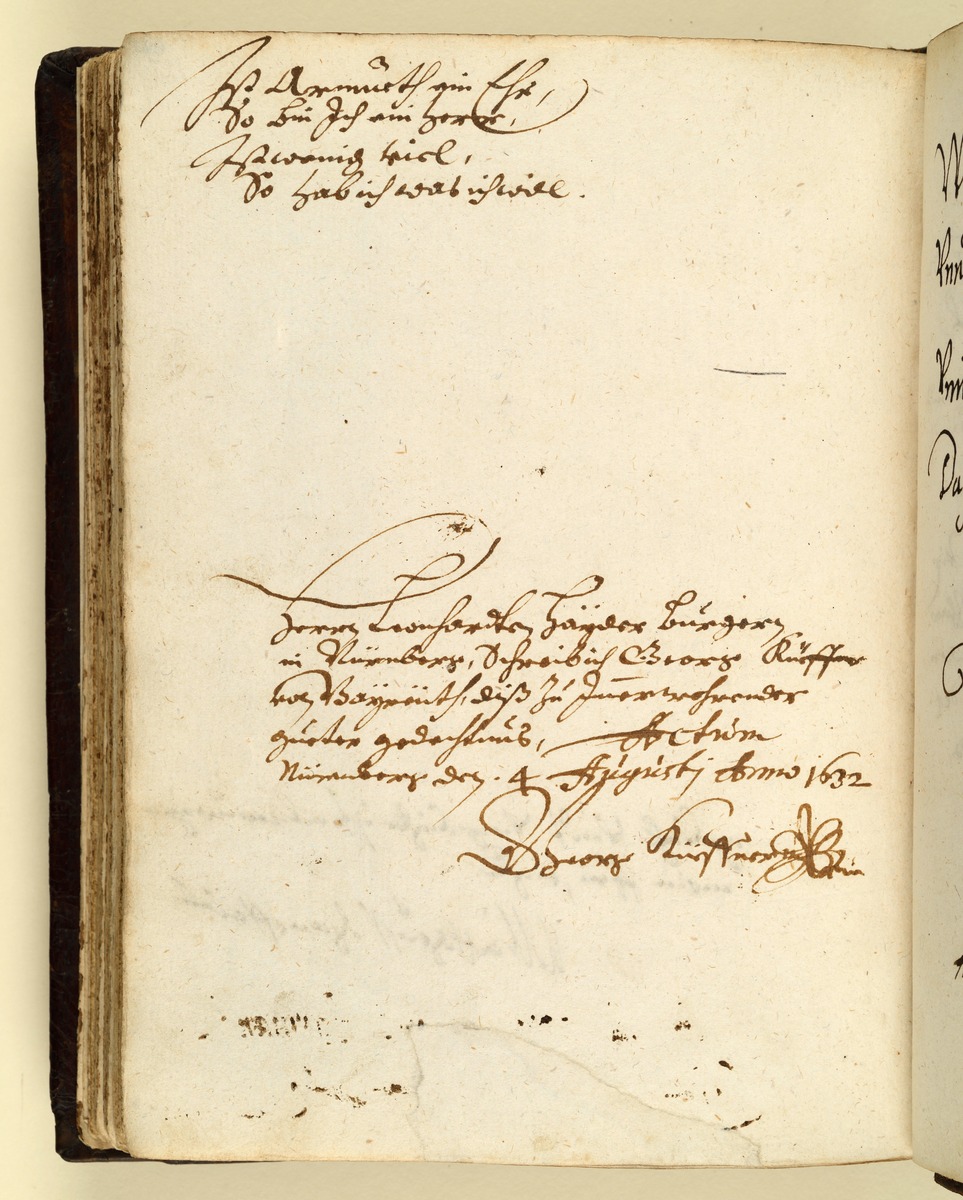 Ist Armueth ein Ehr,
So bin Ich ein Herr,
Ist wenig viel,
So hab ich was ich will.
Herrn Leonhardten Häyder Burgern
in Nürnberg, Schreib ich Georg Küeffner
von Bayreüth, diß zu Im̄erwehrender
gueter gedechtnus, Actum
Nürenberg den 4 Augustj Anno 1632
Georg Küeffner